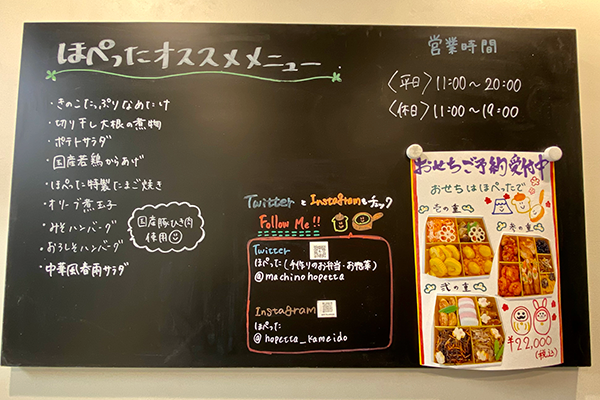 ほぺったオススメメニュー
・きのこたっぷりなめたけ
・切り干し大根の煮物
・ポテトサラダ
・国産若鶏からあげ
・ほぺった特製たまご焼き
・オリーブ煮玉子
・みそハンバーグ
・おろしそハンバーグ
・中華風春雨サラダ
国産豚ひき肉
使用
営業時間
〈平日〉11:00〜20:00
〈休日〉11:00〜19:00
TwitterとInstagramもチェック
Follow Me!!
Twitter
ほぺった(手作りのお弁当・お惣菜)
@machinohopetta
Instagram
ほぺった
@hopetta_kameido
おせちご予約受付中
おせちはほぺったで
壱の重
参の重
弐の重
¥22,000
(税込)